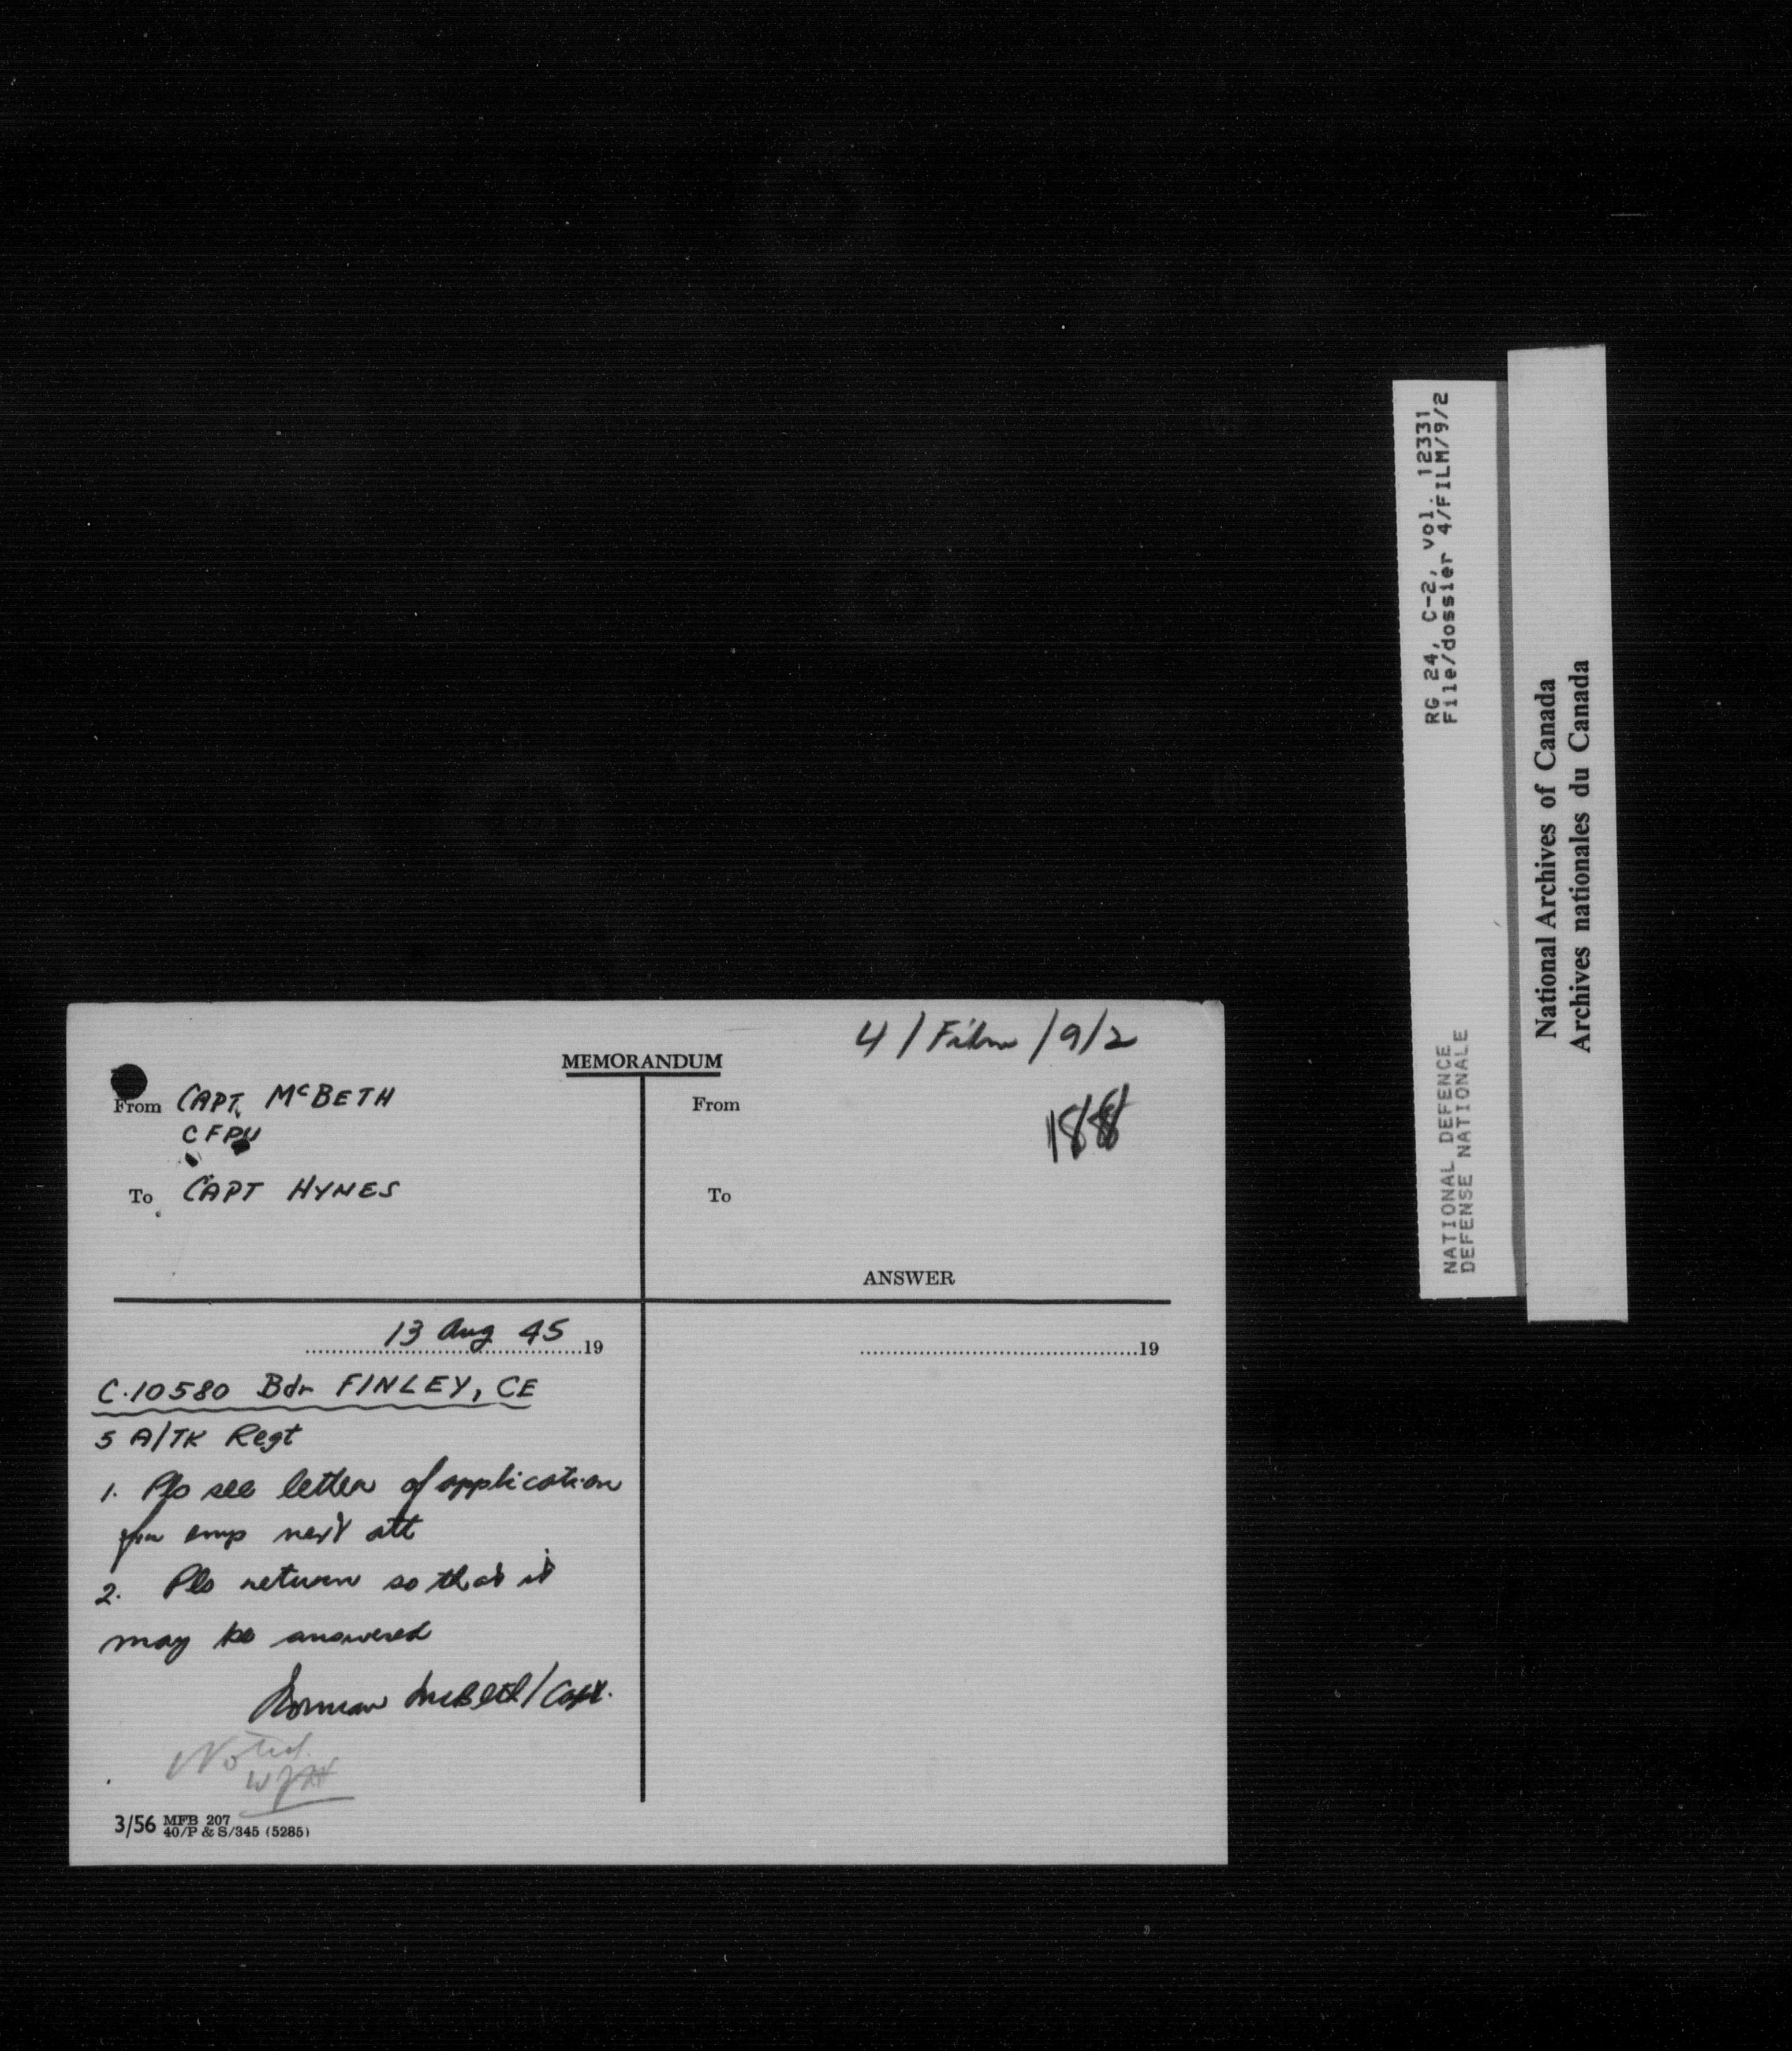 4/Film/9/2
MEMORANDUM
188
From CAPT. McBETH
CFPU
To CAPT HYNES
From
To
ANSWER
13 Aug 45 19
19
C.10580 Bdr FINLEY, CE
5 A/TK Regt
1. Pls see letter of application
for emp next att
2. Pls return so that it
may be answered
Norman McBeth/Capt.
Noted.
WJH
3/56 MFB 207
40/P & S/345 (5285)
RG 24, C-2, vol. 12331
File/dossier 4/FILM/9/2
NATIONAL DEFENCE
DEFENSE NATIONALE
National Archives of Canada
Archives nationales du Canada